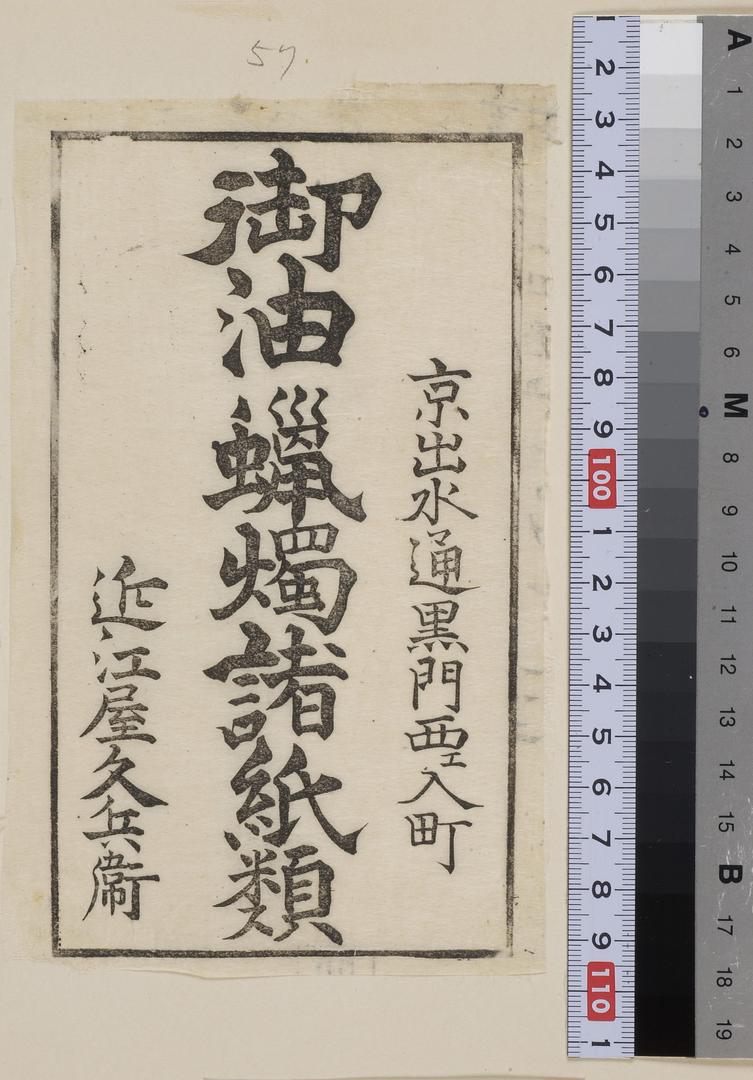 57
京出水通黒門西エ入町
御油蠟燭諸紙類
近江屋久兵衛
1 2 3 4 5 6 7 8 9 100 1 2 3 4 5 6 7 8 9 110 1
A 1 2 3 4 5 6 M 8 9 10 11 12 13 14 15 B 17 18 19